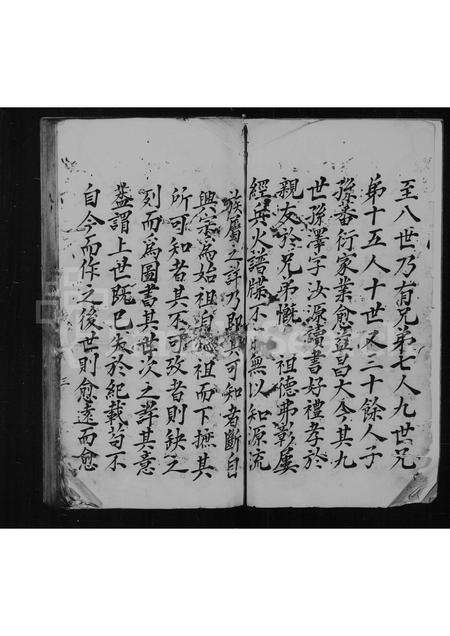 至八世乃有兄弟七人九世兄
弟十五人十世又二十餘人子
孫蕃衍家業愈益昌大今其九
世孫澤字汝源讀書好禮孝於
親友於兄弟慨 祖德弗彰屢
經兵火譜牒不 無以知源流
族屬之詳乃即其可知者斷自
興 為始祖 祖而下摭其
所可知者其不可攷者則缺之
刻而為圖書其世次之詳其意
蓋謂上世既已失於紀載茍不
自今而作之後世則愈遠而愈
三